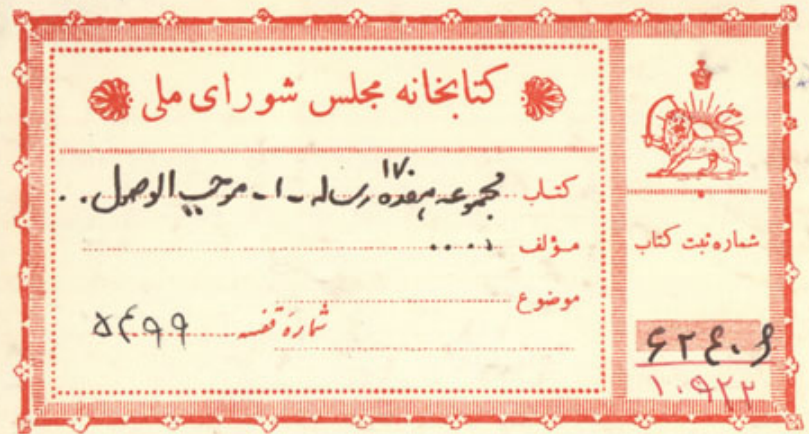 کتابخانه مجلس شورای ملی
کتاب مجموعه هفده ۱۷ رساله - ۱- موجب الوصول ..
مؤلف ....
موضوع
شماره قفسه ۵۴۹۹
شماره ثبت کتاب
۶۲۴۰۶
۱۰۹۲۲